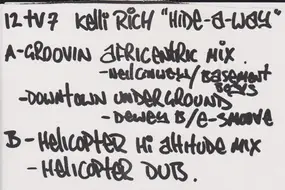 12+V7 Kelli RICH "HiDe-A-WAY"
A-GROOVIN AFRICENTRIC MIX.
-NeilCONWeLL/BASEMENT
BOYS
-DOWNTOWN UNDERGROUND
-DeWeY B/e-SMOOVE
B-HeLICOPTER Hi AltitUDe MIX
-HeliCOPTER DUB.